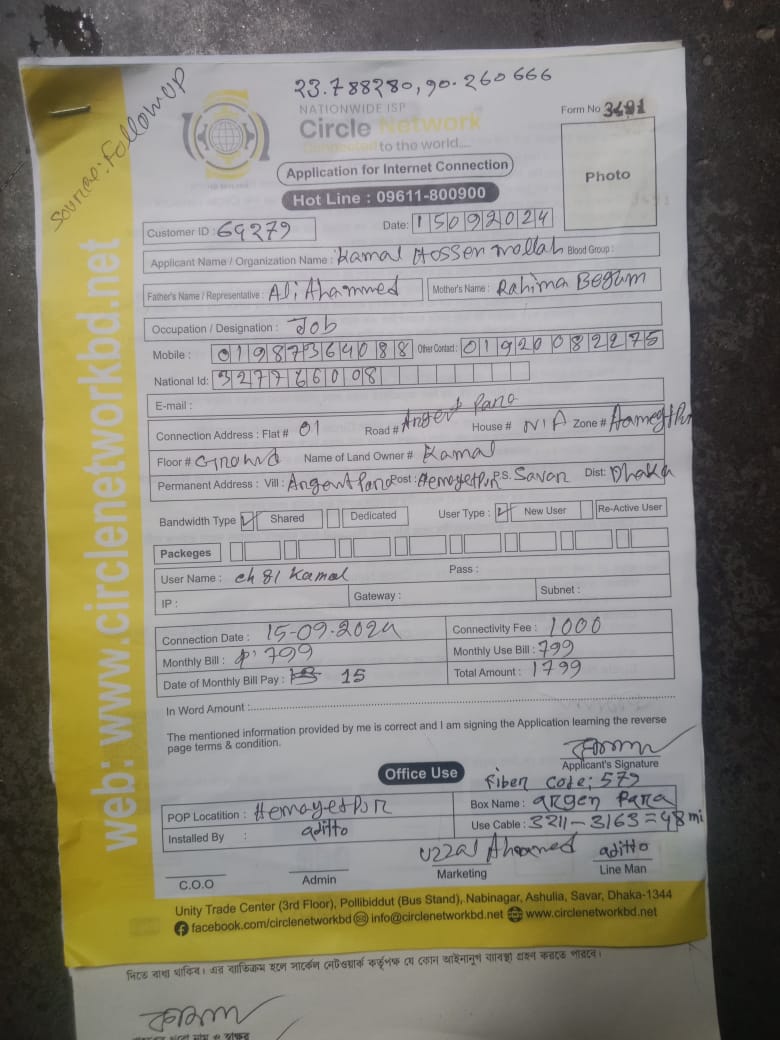 23.788280, 90.260666
Source: Follow UP
NATIONWIDE ISP
Circle Network
Connected to the world....
Form No 3491
Application for Internet Connection
Photo
Hot Line : 09611-800900
Customer ID : 69279 Date: 15092024
Applicant Name / Organization Name : Kamal Hossen mollah Blood Group :
Father's Name / Representative : Ali Ahammed Mother's Name : Rahima Begum
Occupation / Designation : Job
Mobile : 01987364088 Other Contact : 01920082275
National Id: 327766008
E-mail :
Connection Address : Flat # 01 Road # Argent Para House # N/A Zone #
Floor # Ground Name of Land Owner # Kamal
Permanent Address : Vill : Argent Para Post : Hemayetpur P.S. Savar Dist: Dhaka
Bandwidth Type Shared Dedicated User Type : New User Re-Active User
Packeges
User Name : ch 81 kamal Pass :
IP : Gateway : Subnet :
Connection Date : 15-09-2024 Connectivity Fee : 1000
Monthly Bill : 799 Monthly Use Bill : 799
Date of Monthly Bill Pay : 15 Total Amount : 1799
In Word Amount :
The mentioned information provided by me is correct and I am signing the Application learning the reverse
page terms & condition.
কামাল
Applicant's Signature
Office Use
Fiber Code; 579
POP Locatition : Hemayetpur Box Name : argen Para
Installed By : aditto Use Cable : 3211-3163=48 mi
uzzal Ahammed aditto
C.O.O Admin Marketing Line Man
Unity Trade Center (3rd Floor), Pollibiddut (Bus Stand), Nabinagar, Ashulia, Savar, Dhaka-1344
facebook.com/circlenetworkbd info@circlenetworkbd.net www.circlenetworkbd.net
web: www.circlenetworkbd.net
দিতে বাধ্য থাকিব। এর ব্যতিক্রম হলে সার্কেল নেটওয়ার্ক কর্তৃপক্ষ যে কোন আইনানুগ ব্যবস্থা গ্রহণ করতে পারবে।
কামাল